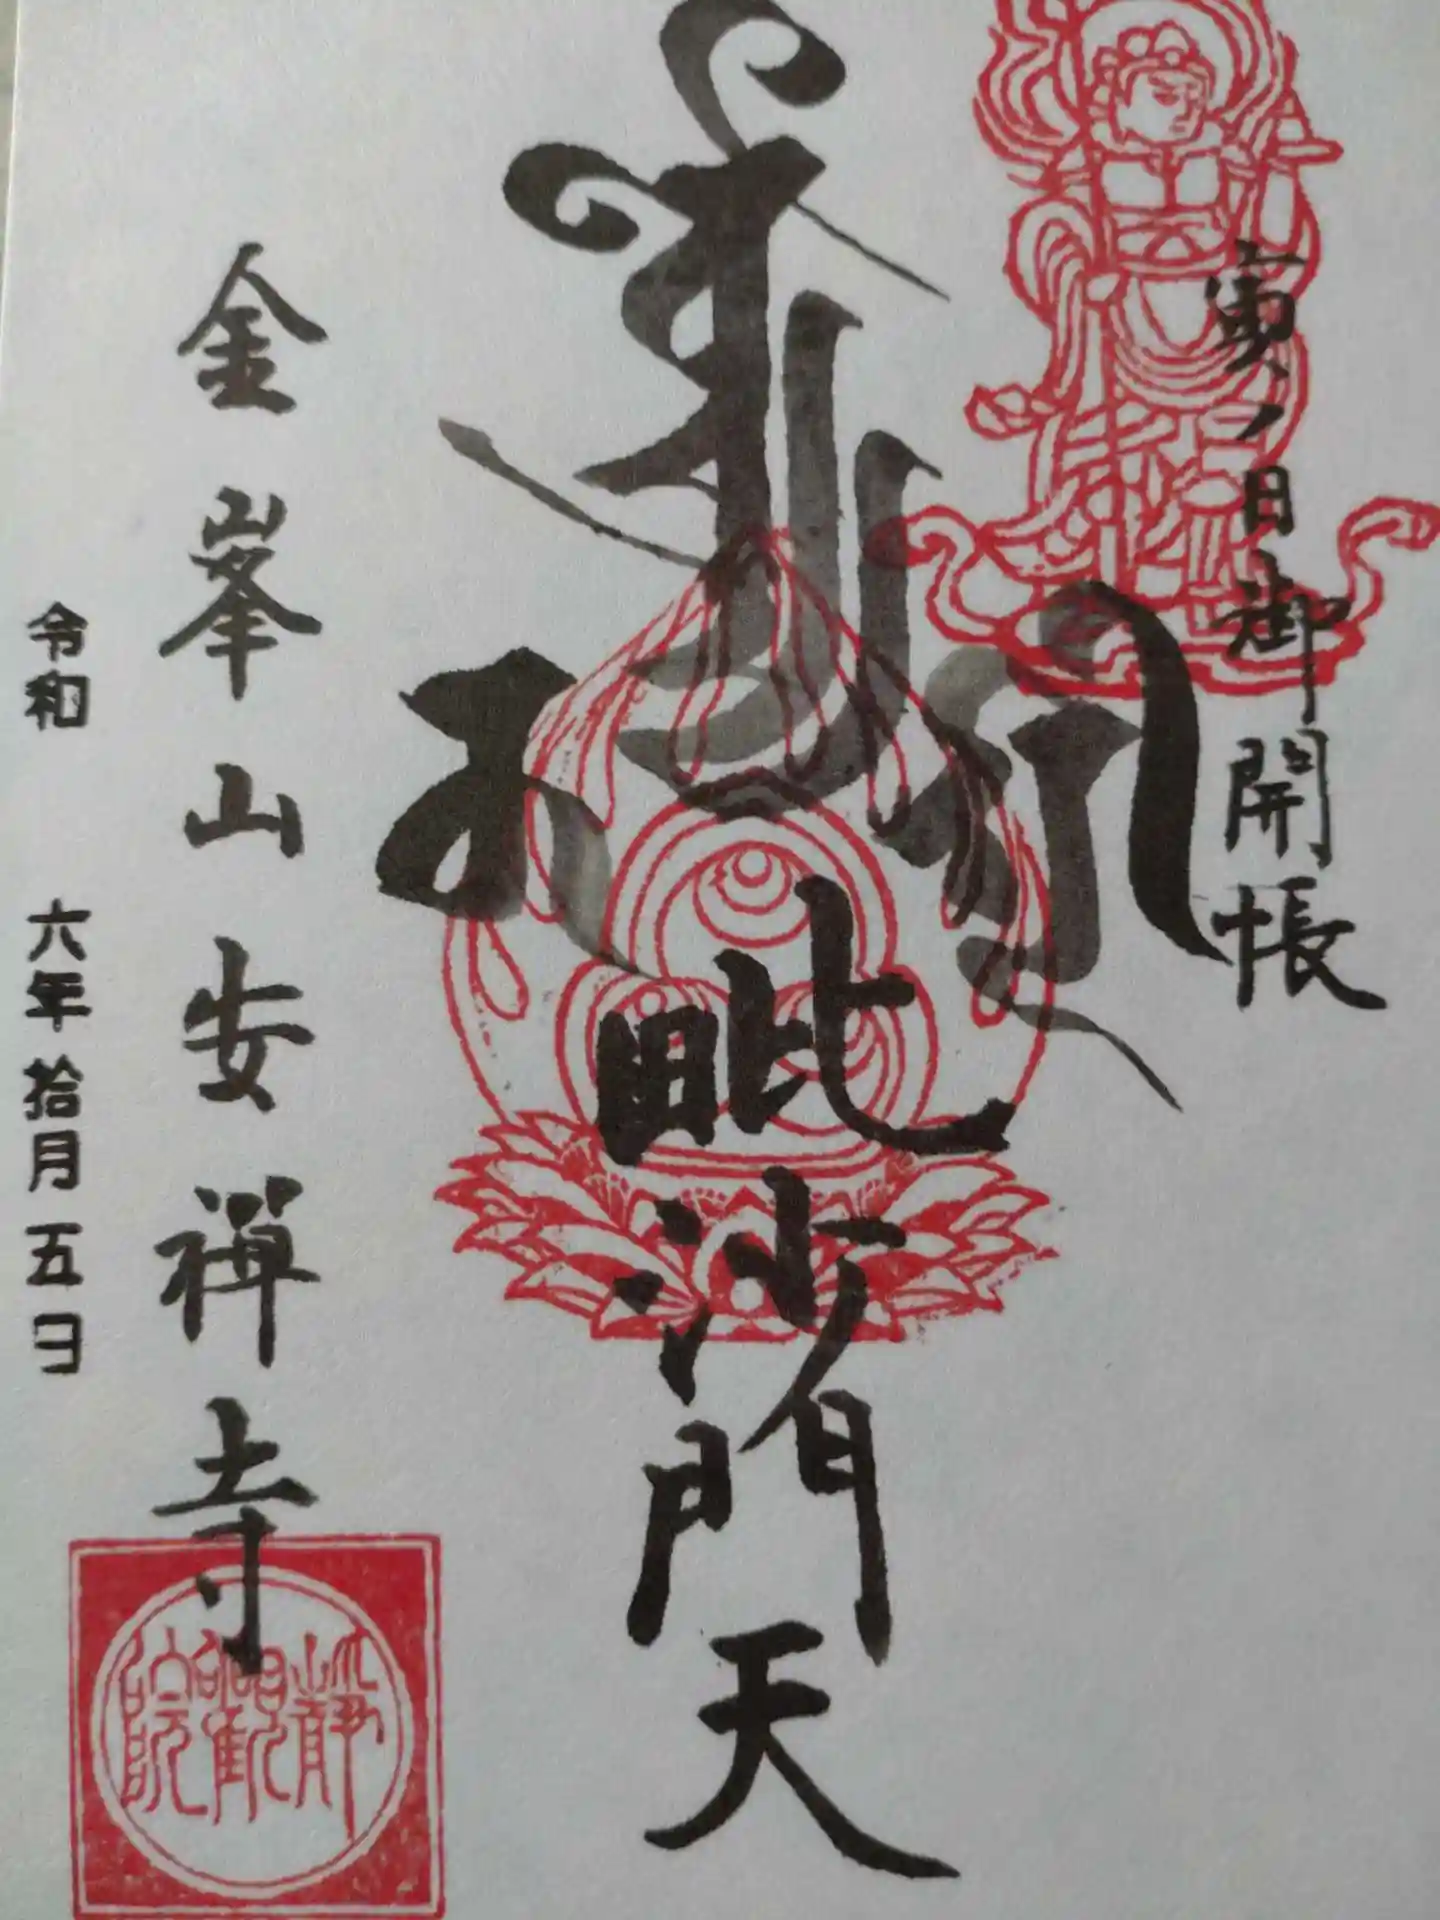 寅ノ日御開帳
毗沙門天
金峯山安禅寺
静觀院
令和 六年拾月五日